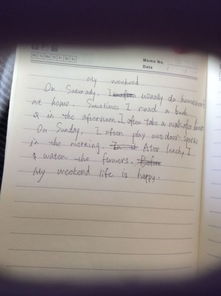 Memo No.
Date
my weekend
On Saturday, I usually do homework
at home. Sometimes I read a book
& in the afternoon I often take a walk
On Sunday, I often play outdoor sports
in the morning. After lunch, I
& water the flowers.
My weekend life is happy.